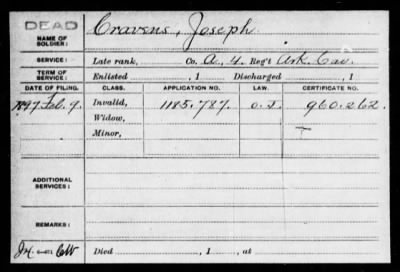 DEAD
NAME OF SOLDIER: Cravens, Joseph
SERVICE: Late rank, Co. A, 4 Reg't Ark. Cav.
TERM OF SERVICE: Enlisted , 1 Discharged , 1
DATE OF FILING. CLASS. APPLICATION NO. LAW. CERTIFICATE NO.
1897 Feb. 9. Invalid, 1185.787. 960.262.
Widow,
Minor,
ADDITIONAL SERVICES:
REMARKS:
Died , 1 , at